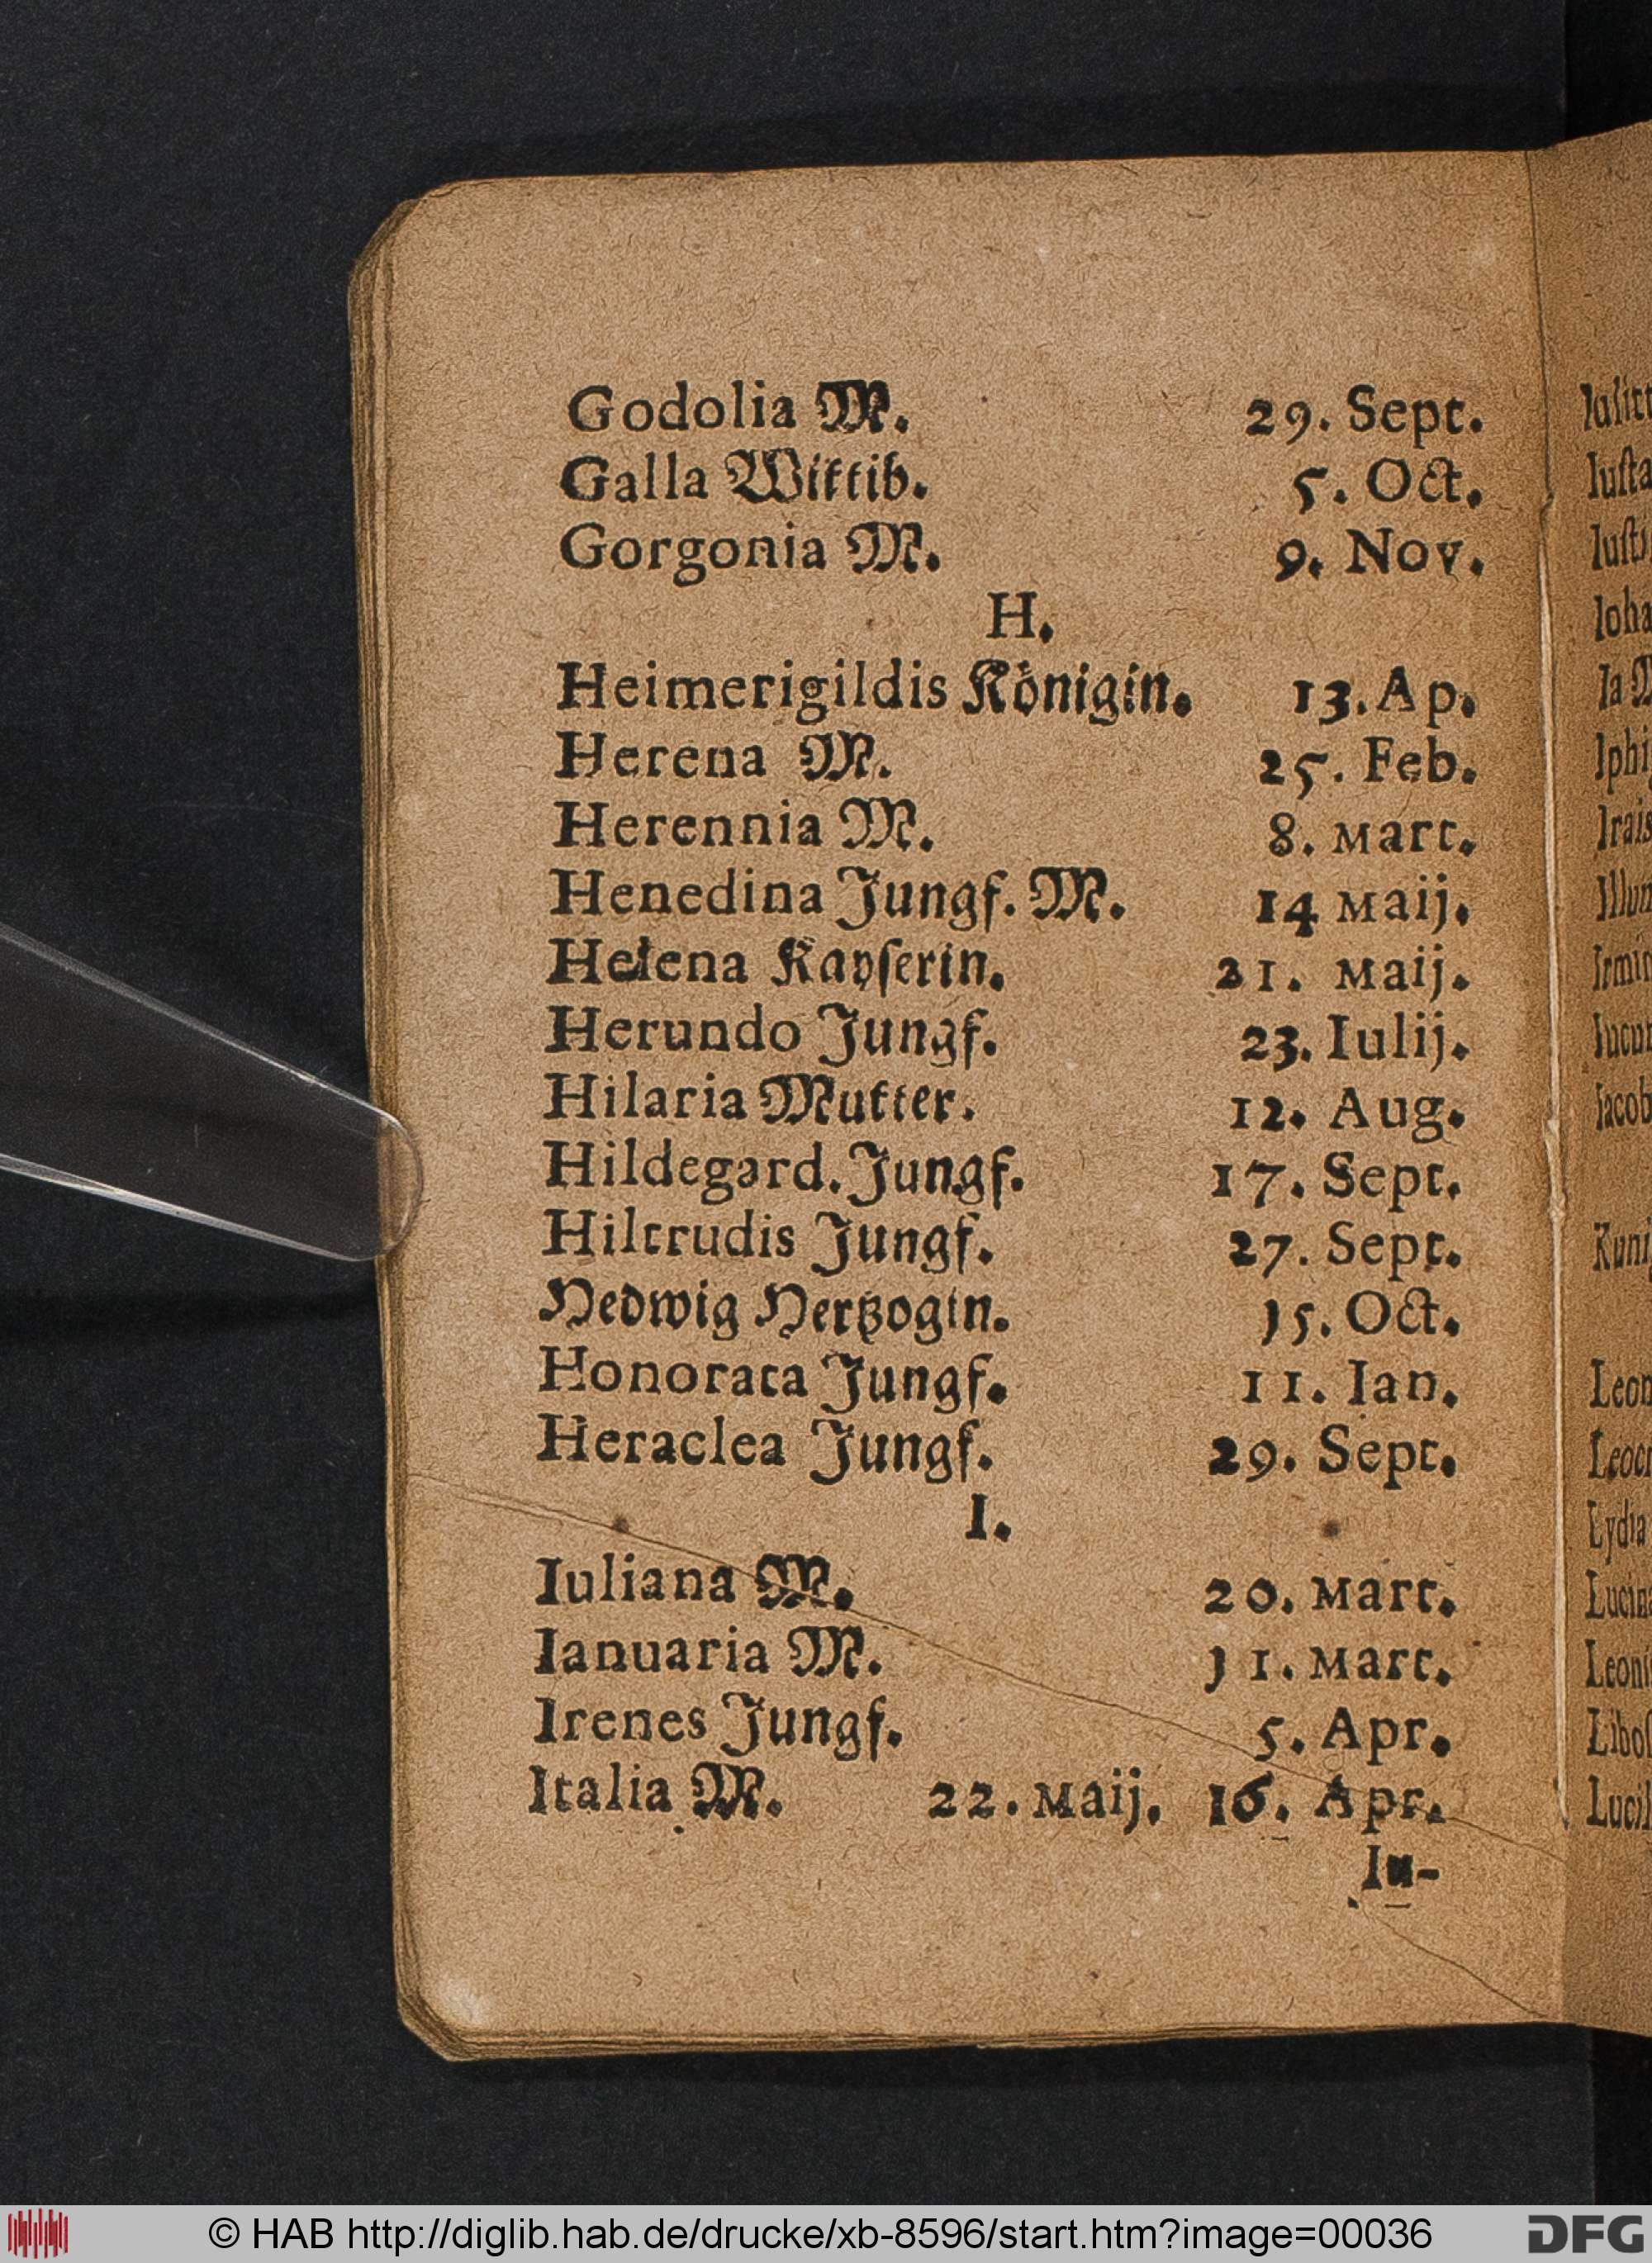 Godolia M. 29. Sept.
Galla Wittib. 5. Oct.
Gorgonia M. 9. Nov.
H.
Heimerigildis Königin. 13. Ap.
Herena M. 25. Feb.
Herennia M. 8. Mart.
Henedina Jungf. M. 14 Maij.
Helena Kayſerin. 21. Maij.
Herundo Jungf. 23. Iulij.
Hilaria Mutter. 12. Aug.
Hildegard. Jungf. 17. Sept.
Hiltrudis Jungf. 27. Sept.
Hedwig Hertzogin. 15. Oct.
Honorata Jungf. 11. Ian.
Heraclea Jungf. 29. Sept.
I.
Iuliana M. 20. Mart.
Ianuaria M. 31. Mart.
Irenes Jungf. 5. Apr.
Italia M. 22. Maij. 16. Apr.
Iu-
Iuſta
Ioha
Ia M
Iphi
Irais
Iacob
Kuni
Leon
Lydia
Lucin
Leoni
Liboſ
Lucil
© HAB http://diglib.hab.de/drucke/xb-8596/start.htm?image=00036
DFG